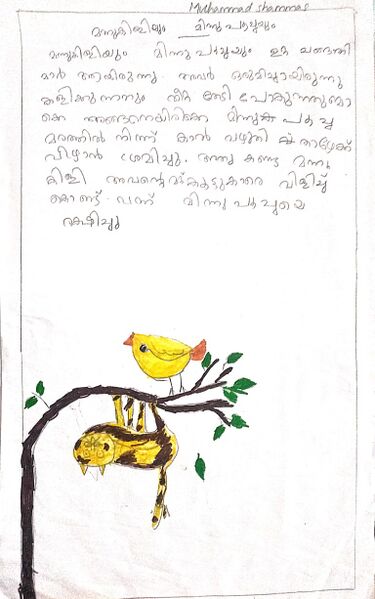 Muhammad shammas
മന്നുകിളിയും മിന്നു പൂച്ചയും
മന്നുകിളിയും മിന്നു പൂച്ചയും ഉറ്റ ചങ്ങാതി
മാർ ആയിരുന്നു. അവർ ഒരുമിച്ചായിരുന്നു
കളിക്കുന്നതും തീറ്റ തേടി പോകുന്നതുമൊ
ക്കെ അങ്ങനെയിരിക്കെ മിന്നു പൂച്ച
മരത്തിൽ നിന്ന് കാൽ വഴുതി താഴേക്ക്
വീഴാൻ ശ്രമിച്ചു. അതു കണ്ട മന്നു
കിളി അവന്റെ കൂട്ടുകാരെ വിളിച്ച്
കൊണ്ട് വന്ന് മിന്നു പൂച്ചയെ
രക്ഷിച്ചു